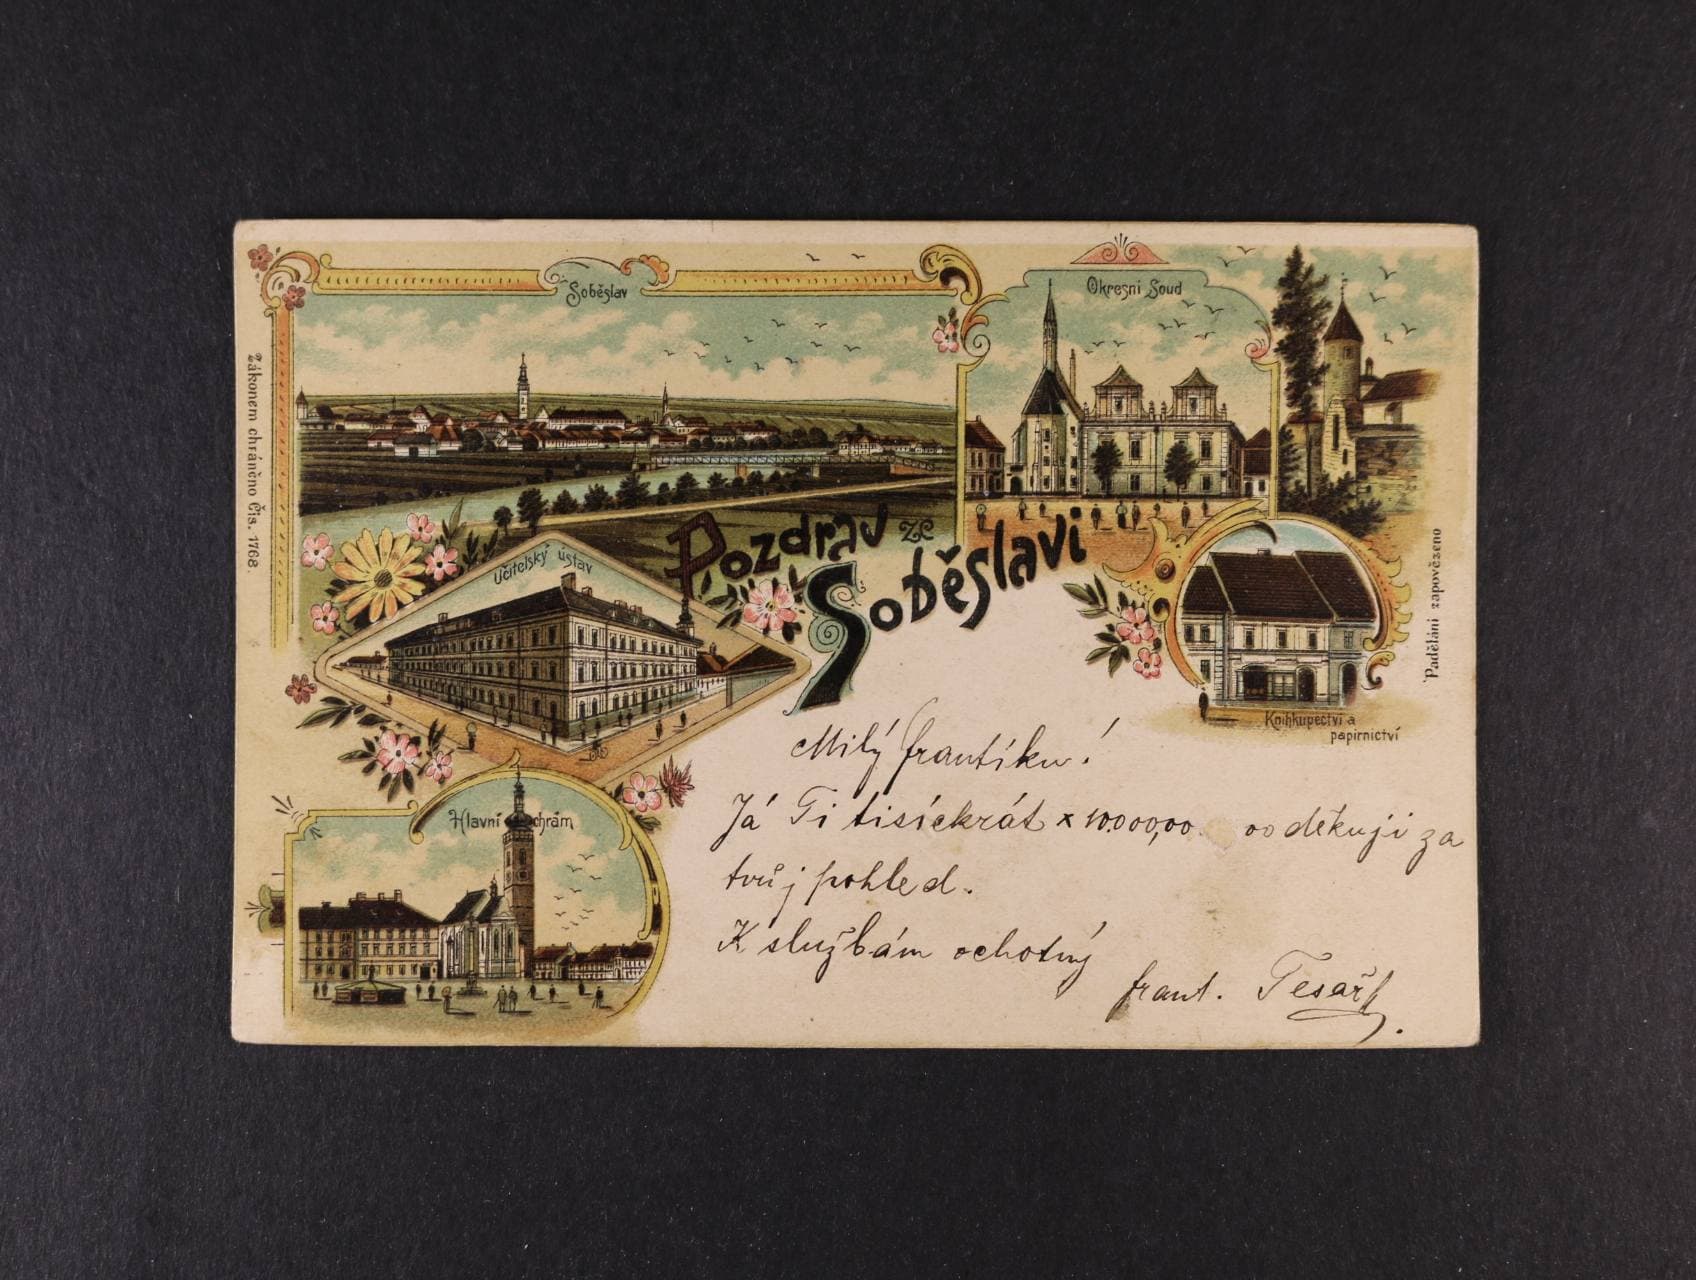 Soběslav
Okresní Soud
Zákonem chráněno Čís. 1768.
Pozdrav ze
Soběslavi
Učitelský ústav
Padělání zapovězeno
Knihkupectví a
papírnictví
Hlavní chrám
Milý frantíku!
Já Ti tisíckrát x 10.000,00 00 děkuji za
tvůj pohled.
K službám ochotný
frant. Tesař